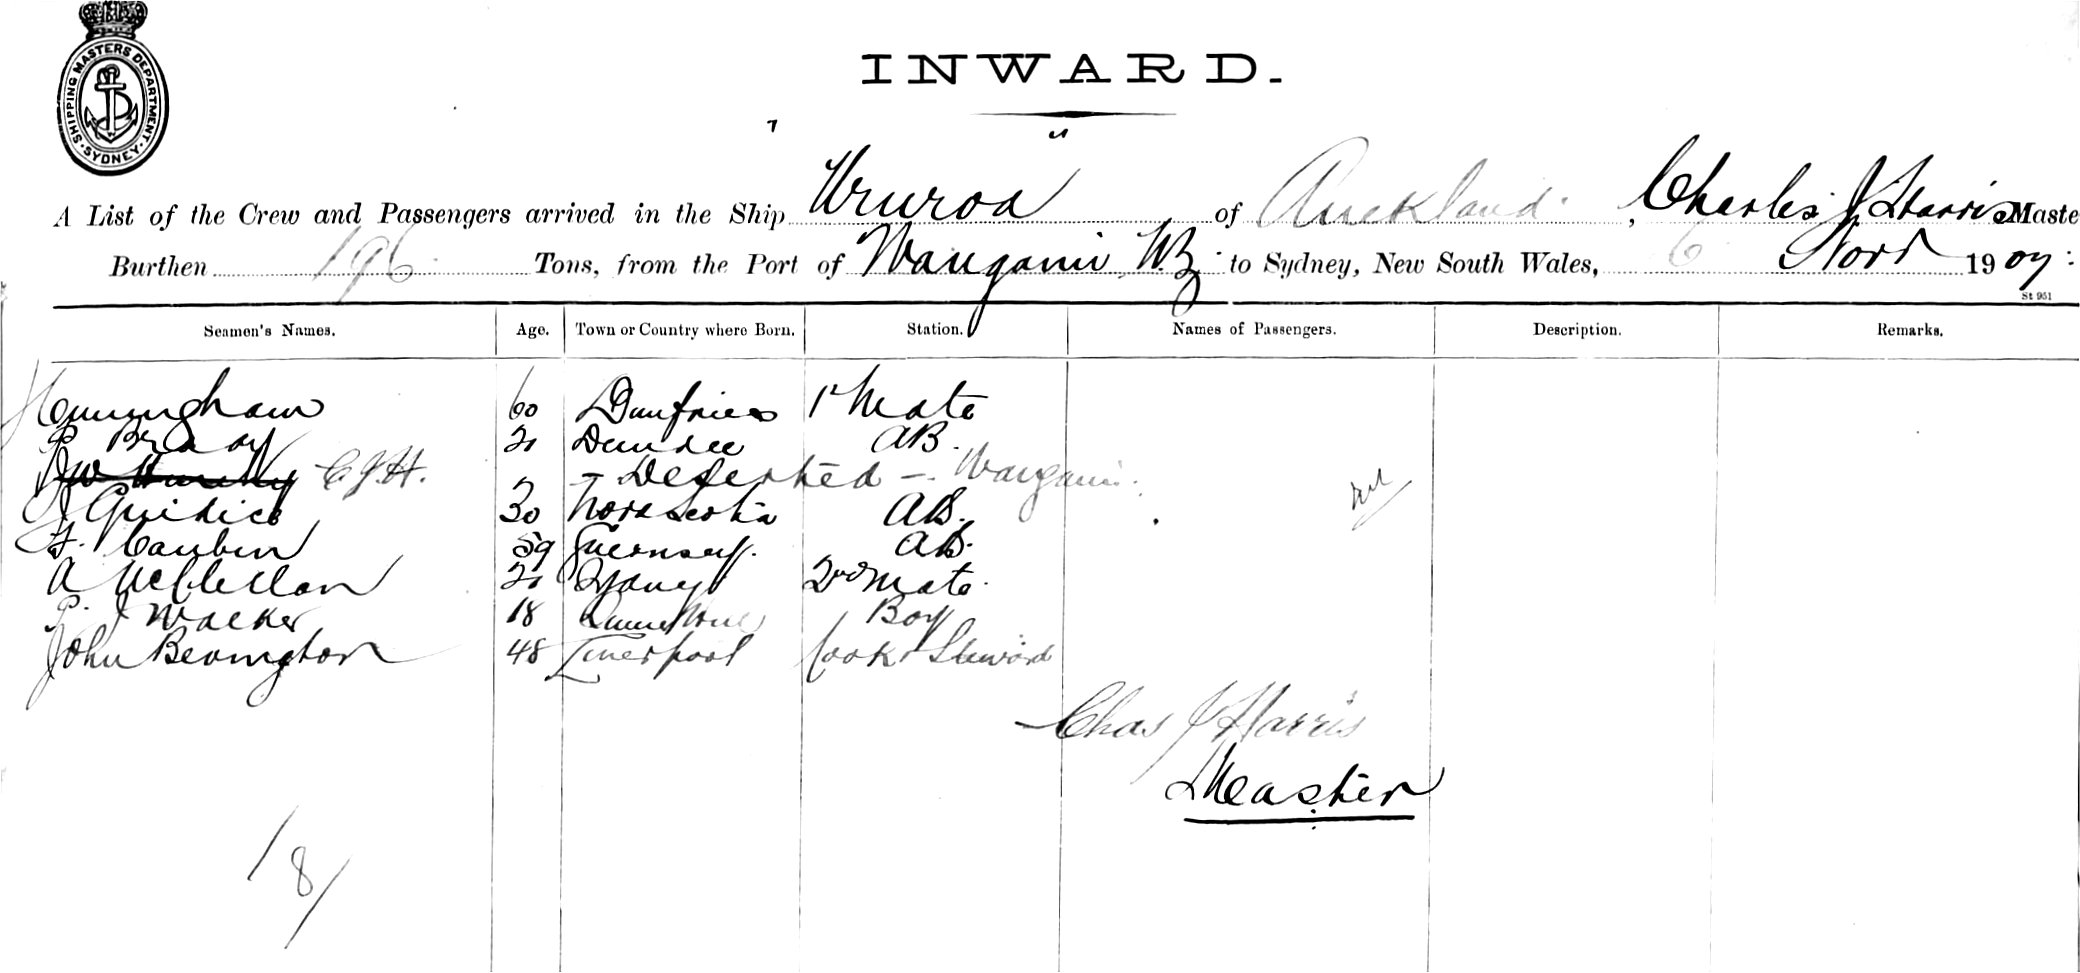 SHIPPING MASTERS DEPARTMENT · SYDNEY ·
INWARD.
A List of the Crew and Passengers arrived in the Ship Ururoa of Auckland, Charles J Harris Maste
Burthen 196 Tons, from the Port of Wanganui N.Z. to Sydney, New South Wales, 6 Novr 1907
St 951
Seamen's Names. Age. Town or Country where Born. Station. Names of Passengers. Description. Remarks.
Cunningham 60 Dumfries 1st Mate
21 Dundee AB.
C.J.H. - Deserted - Wanganui
J Guidice 30 Nova Scotia AB.
F. 59 Guernsey. AB.
A McClellan 21 2nd Mate
P. J Walker 18 Boy
John Bevington 48 Liverpool Cook & Steward
Chas J Harris
Master
/8/